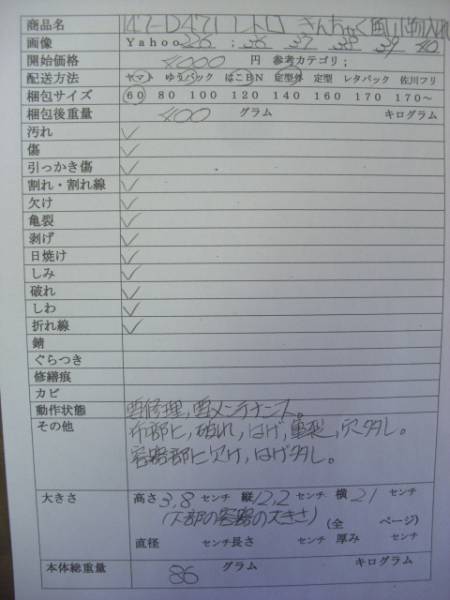 商品名 147-D471 レトロ きんちゃく 風 小物入れ
画像 Yahoo 226 ; 36 37 38 39 40
開始価格 4000 円 参考カテゴリ；
配送方法 ヤマト ゆうパック はこBN 定型外 定型 レタパック 佐川フリ
梱包サイズ 60 80 100 120 140 160 170 170～
梱包後重量 400 グラム キログラム
汚れ ✓
傷 ✓
引っかき傷 ✓
割れ・割れ線 ✓
欠け ✓
亀裂 ✓
剥げ ✓
日焼け ✓
しみ ✓
破れ ✓
しわ ✓
折れ線 ✓
錆
ぐらつき
修繕痕
カビ
動作状態 要修理,要メンテナンス。
その他 布部に,破れ,はげ,亀裂,穴タタし。
容器部に欠け,はげタタし。
大きさ 高さ 3,8 センチ 縦 12,2 センチ 横 21 センチ
(下部の容器の大きさ) (全 ページ)
直径 センチ 長さ センチ 厚み センチ
本体総重量 86 グラム キログラム